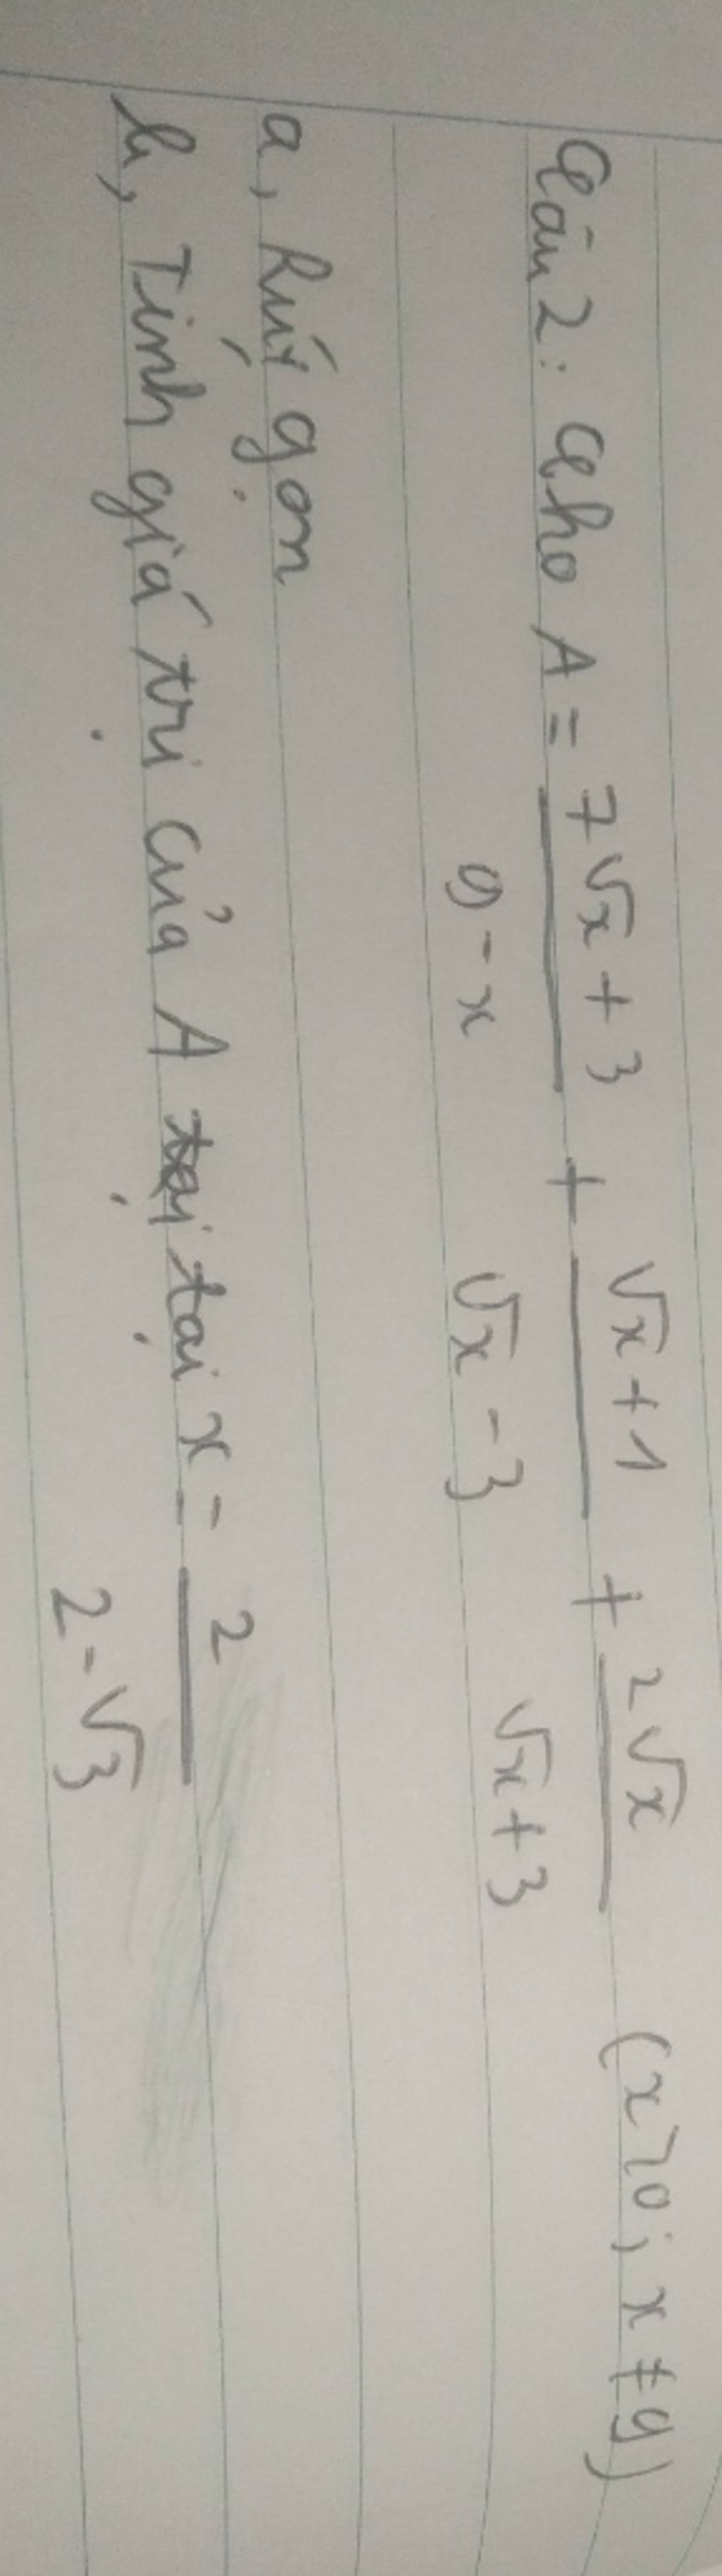 Câu 2: Cho A = 7√x + 3 / 9 - x + √x + 1 / √x - 3 + 2√x / √x + 3 (x > 0; x ≠ 9)
a, Rút gọn
b, Tính giá trị của A tại x = 2 / 2 - √3